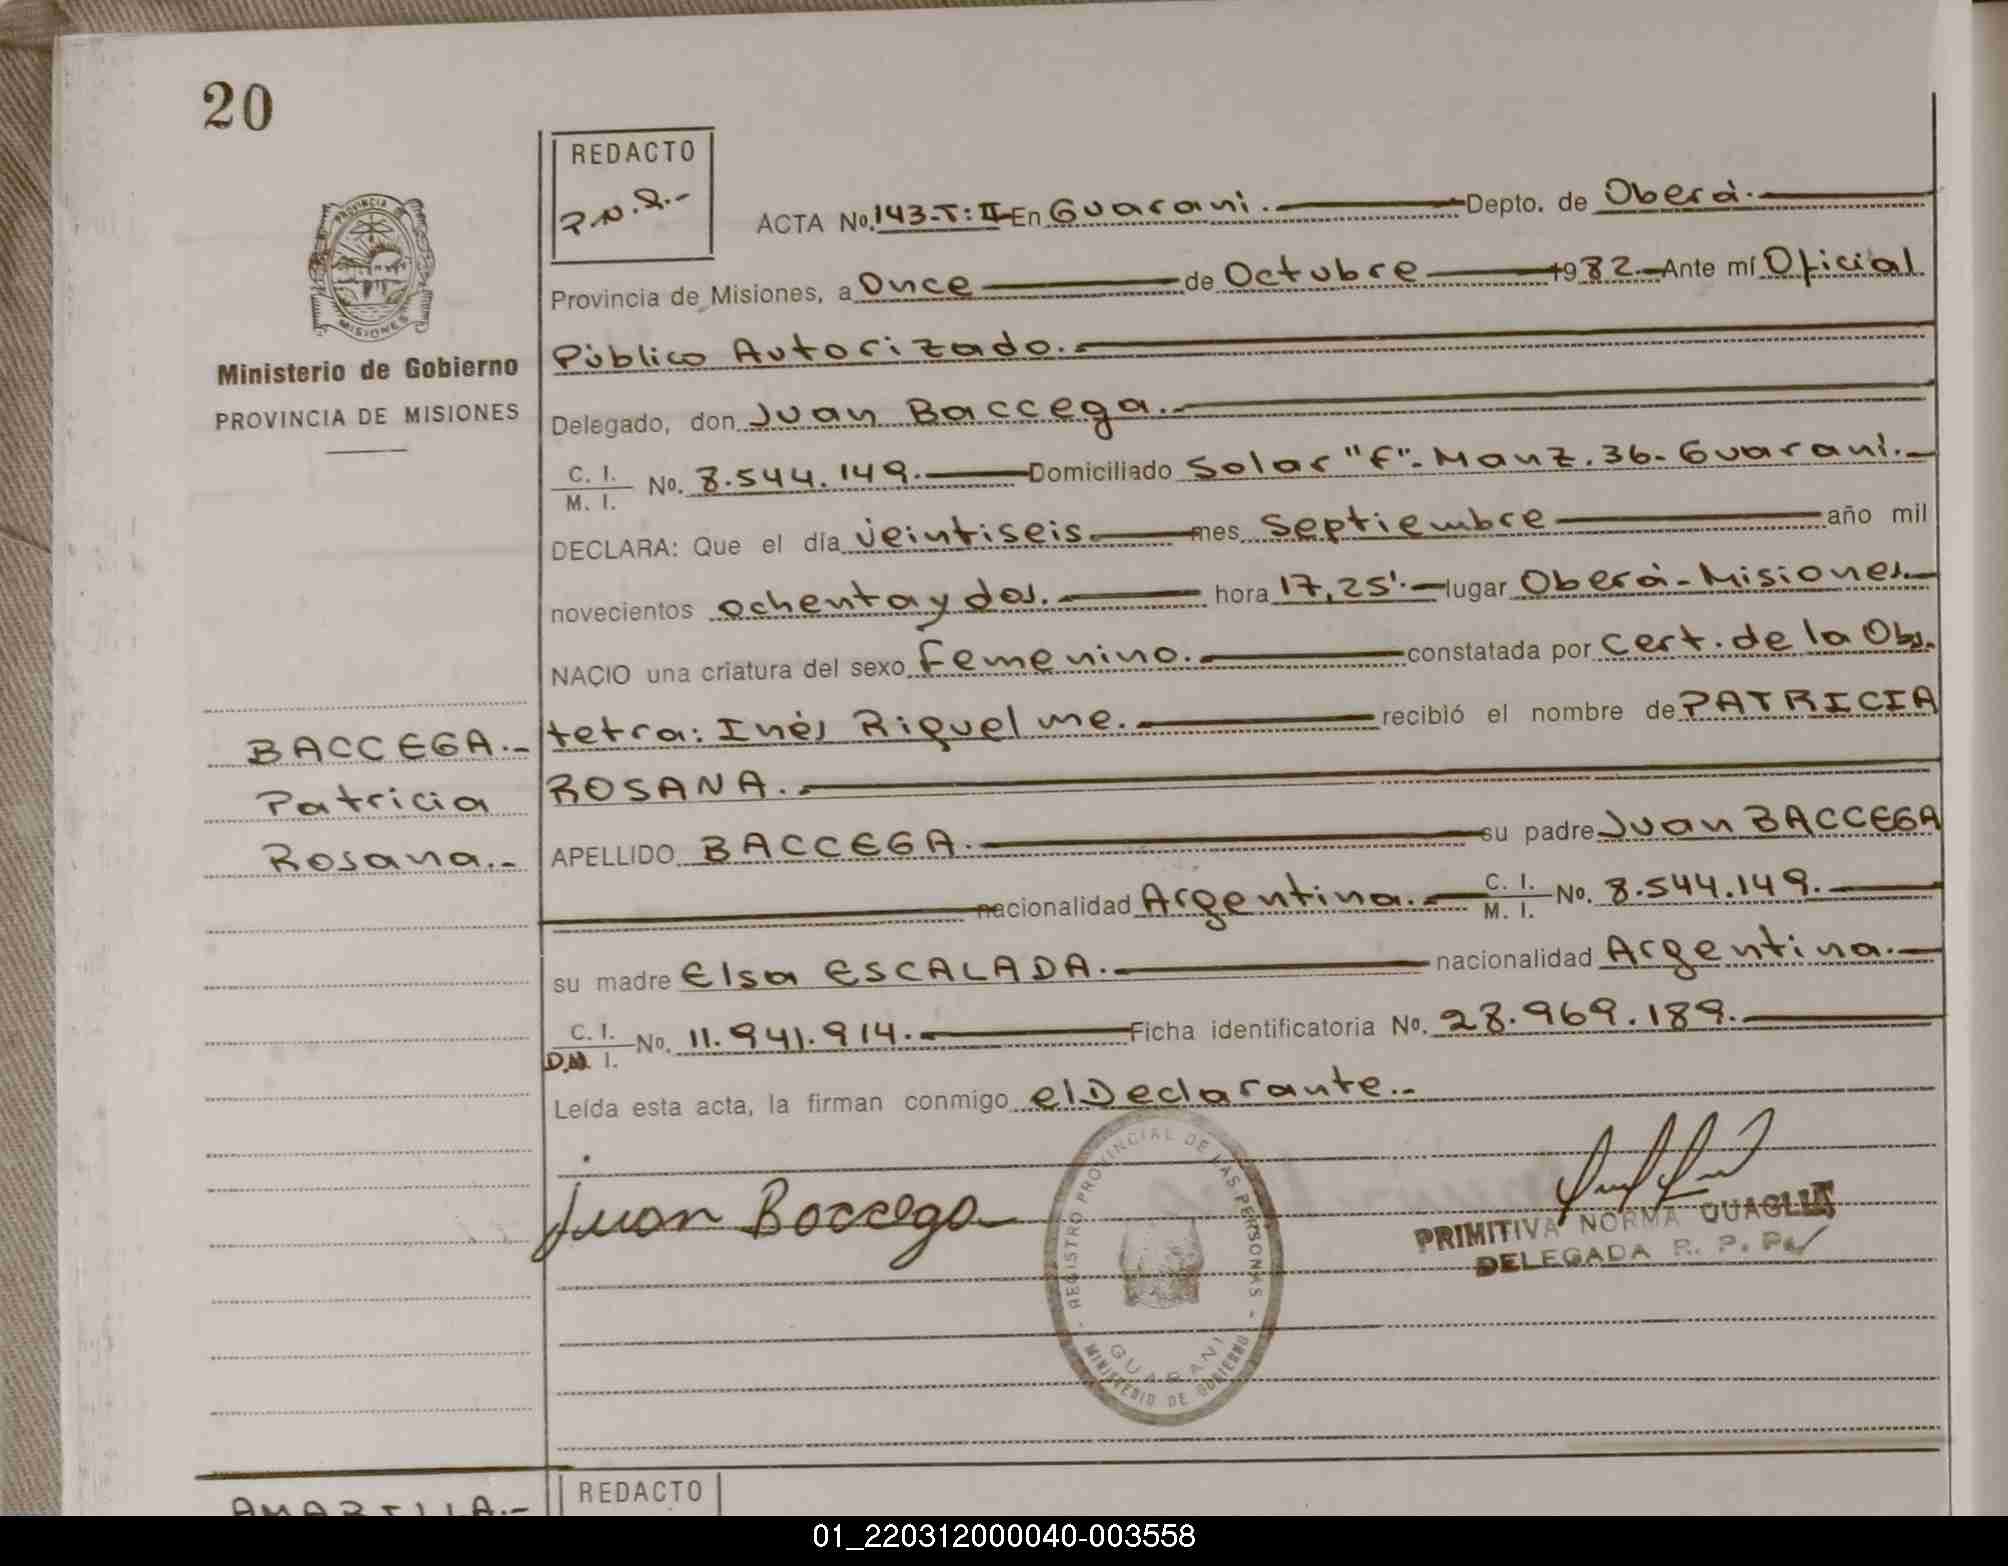 20
REDACTO
P.N.Q.-
PROVINCIA DE
MISIONES
Ministerio de Gobierno
PROVINCIA DE MISIONES
ACTA No. 143-T: II- En Guarani. Depto. de Oberá.
Provincia de Misiones, a Once de Octubre 1982.- Ante mí Oficial
Público Autorizado.-
Delegado, don Juan Baccega.-
C. I. / M. I. No. 8.544.149. Domiciliado Solar "f"- Manz. 36- Guarani.-
DECLARA: Que el día veintiseis mes Septiembre año mil
novecientos ochenta y dos. hora 17,25'.- lugar Oberá-Misiones.-
NACIO una criatura del sexo Femenino.- constatada por Cert. de la Obs-
tetra: Inés Riquelme.- recibió el nombre de PATRICIA
ROSANA.-
APELLIDO BACCEGA.- su padre Juan BACCEGA
nacionalidad Argentina.- C. I. / M. I. No. 8.544.149.-
su madre Elsa ESCALADA.- nacionalidad Argentina.-
C. I. / D.N. I. No. 11.941.914.- Ficha identificatoria No. 28.969.189.-
Leída esta acta, la firman conmigo el Declarante.-
BACCEGA.-
Patricia
Rosana.-
Juan Baccega
REGISTRO PROVINCIAL DE LAS PERSONAS
GUARANI
MINISTERIO DE GOBIERNO
PRIMITIVA NORMA QUAGLIA
DELEGADA R. P. P.
AMARILLA.-
REDACTO
01_220312000040-003558